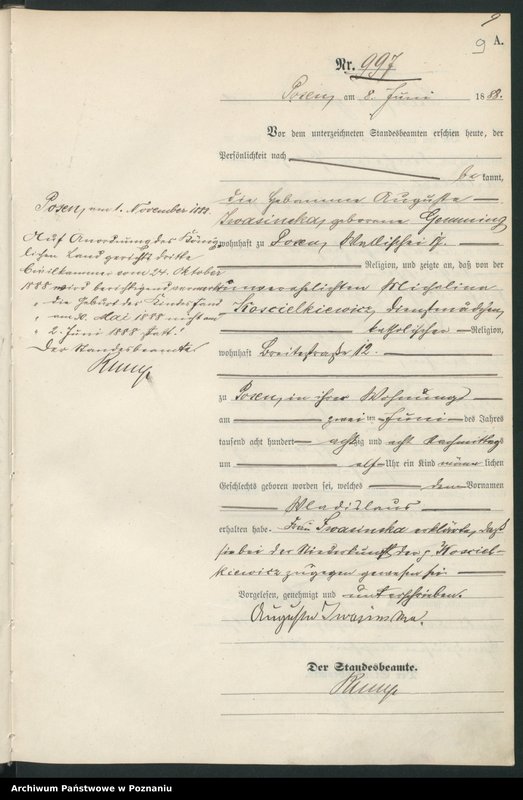 9
9
A.
Nr. 997
Posen, am 8. Juni 1888.
Vor dem unterzeichneten Standesbeamten erschien heute, der
Persönlichkeit nach
be kannt,
die Hebamme Auguste
Iwasinska, geborene
wohnhaft zu Posen, Wallischei
Religion, und zeigte an, daß von der
unverehelichten Michalina
Koscielkiewicz, Dienstmädchen,
katholischer Religion,
wohnhaft Breitestraße 12.
zu Posen, in ihrer Wohnung
am zwei ten Juni des Jahres
tausend acht hundert achtzig und acht Nachmittags
um elf Uhr ein Kind männ lichen
Geschlechts geboren worden sei, welches dem Vornamen
Wladislaus
erhalten habe. Frau Iwasinska erklärte, daß
sie bei der Niederkunft der p. Kosciel-
kiewicz zugegen gewesen sei.
Vorgelesen, genehmigt und unterschrieben.
Auguste Iwasinska.
Der Standesbeamte.
Posen, am 1. November 1888.
Auf Anordnung des König-
lichen Landgerichts dritte
Civilkammer vom 24. Oktober
1888 wird berichtigend vermerkt:
die Geburt des Kindes fand
am 30. Mai 1888 nicht am
2. Juni 1888 statt.
Der Standesbeamte
Archiwum Państwowe w Poznaniu